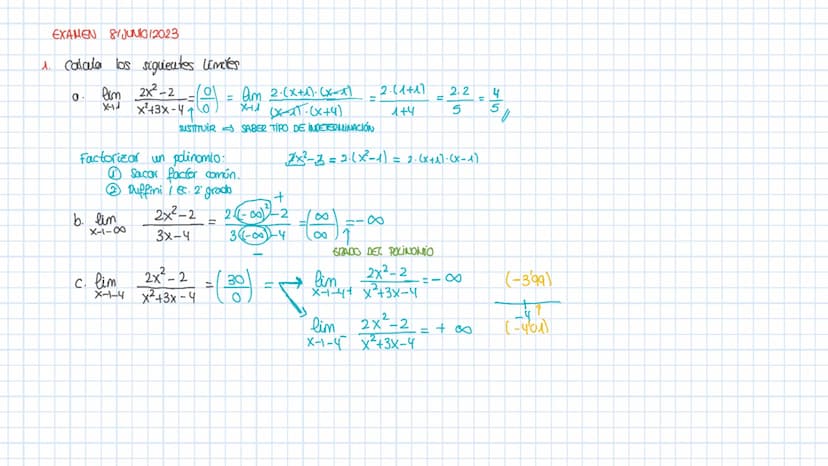 EXAMEN 8/JUNIO/2023
1. Calcula los siguientes límites
a. lim x→1 (2x²-2)/(x²+3x-4) = (0/0) = lim x→1 (2·(x+1)·(x-1))/((x-1)·(x+4)) = (2·(1+1))/(1+4) = (2·2)/5 = 4/5 //
SUSTITUIR ⇒ SABER TIPO DE INDETERMINACIÓN
Factorizar un polinomio: 2x²-2 = 2·(x²-1) = 2·(x+1)·(x-1)
① Sacar factor común.
② Ruffini / Ec. 2º grado
b. lim x→-∞ (2x²-2)/(3x-4) = (2(-∞)²-2)/(3(-∞)-4) = (∞/∞) = -∞
+
-
GRADO DEL POLINOMIO
c. lim x→-4 (2x²-2)/(x²+3x-4) = (30/0) = lim x→-4+ (2x²-2)/(x²+3x-4) = -∞ (-3'99)
-4
lim x→-4- (2x²-2)/(x²+3x-4) = +∞ (-4'01)